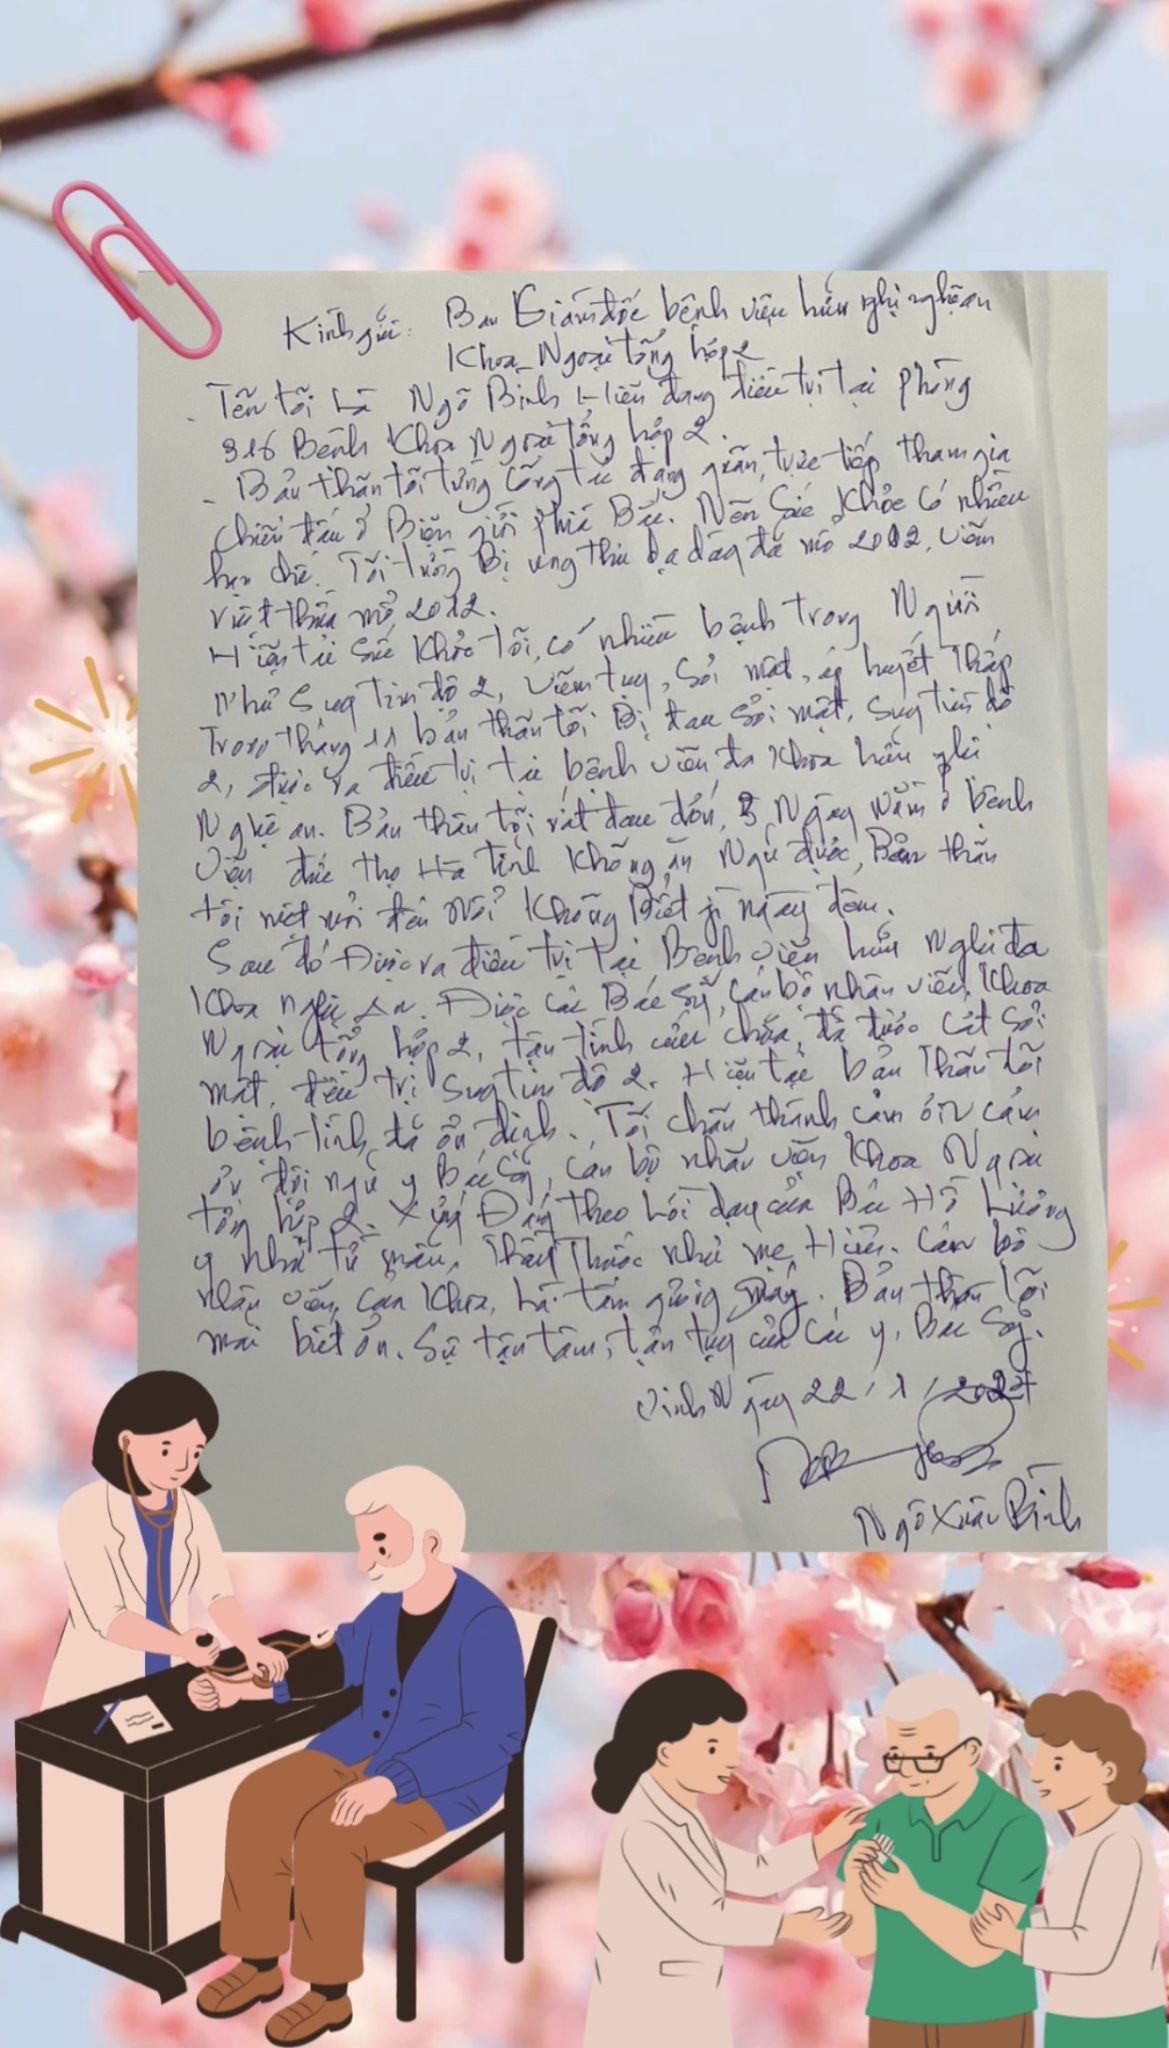 Kính gửi: Ban Giám đốc bệnh viện hữu nghị nghệ an
Khoa Ngoại tổng hợp 2
- Tên tôi là Ngô Bình Hiện đang điều trị tại phòng
316 Bệnh Khoa Ngoại tổng hợp 2.
- Bản thân tôi từng công tác đang quân, trực tiếp tham gia
chiến đấu ở Biên giới phía Bắc. Nên sức khỏe có nhiều
hạn chế. Tôi từng Bị ung thư dạ dày đã mổ 2012, viêm
ruột thừa mổ 2012.
Hiện tại sức khỏe tôi, có nhiều bệnh trong Người
Như Suy tim độ 2, viêm tụy, Sỏi mật, áp huyết thấp
Trong tháng 11 bản thân tôi Bị đau sỏi mật, suy tim độ
2, được ra điều trị tại bệnh viện đa khoa hữu nghị
Nghệ an. Bản thân tôi rất đau đớn, 3 Ngày nằm ở bệnh
viện đức thọ Hà tĩnh không ăn Ngủ được, Bản thân
tôi mệt mỏi đến nỗi không Biết gì ngày đêm.
Sau đó Được ra điều trị tại Bệnh viện hữu Nghị đa
khoa nghệ An. Được các Bác Sỹ, cán bộ nhân viên, khoa
Ngoại tổng hợp 2, tận tình cứu chữa, đã được cắt sỏi
mật, điều trị suy tim độ 2. Hiện tại bản thân tôi
bệnh tình đã ổn định. Tôi chân thành cảm ơn cảm
ơn đội ngũ y Bác Sỹ, cán bộ nhân viên khoa Ngoại
tổng hợp 2. Xứng Đáng theo lời dạy của Bác Hồ Lương
y như từ mẫu, Thầy Thuốc như mẹ Hiền. Cán bộ
nhân viên của khoa, Là tấm gương sáng. Bản thân tôi
mãi biết ơn. Sự tận tâm, tận tụy của các y, Bác Sỹ.
Vinh Ngày 22/1/2024
Ngô Xuân Bình